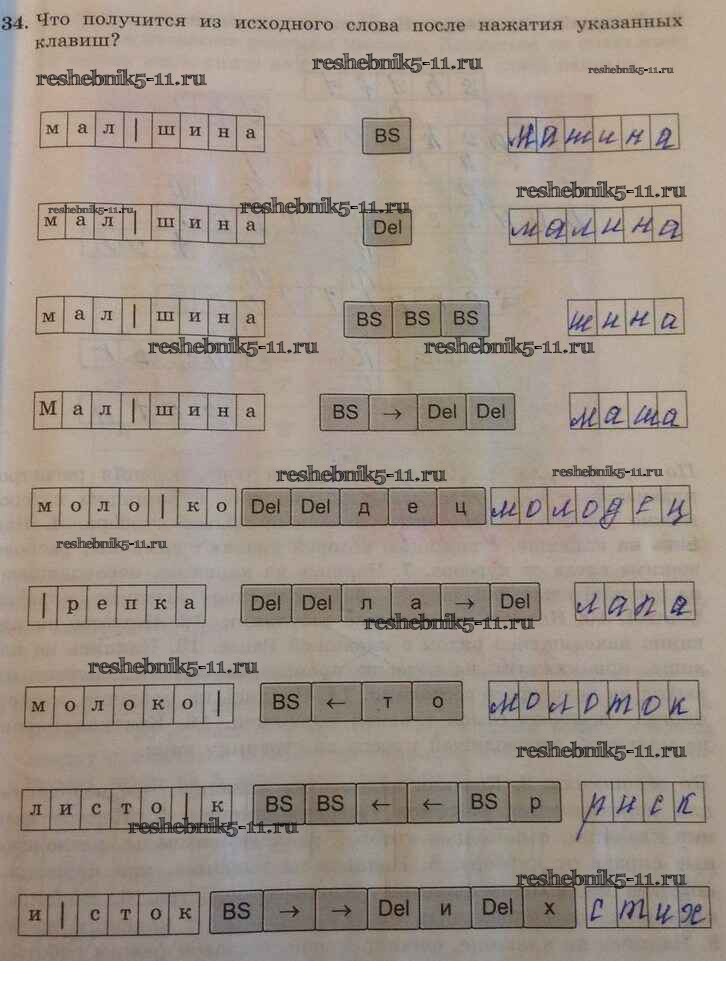 34. Что получится из исходного слова после нажатия указанных
клавиш?
reshebnik5-11.ru reshebnik5-11.ru reshebnik5-11.ru
м а л | ш и н а BS машина
reshebnik5-11.ru reshebnik5-11.ru reshebnik5-11.ru
м а л | ш и н а Del малина
м а л | ш и н а BS BS BS шина
reshebnik5-11.ru reshebnik5-11.ru
М а л | ш и н а BS → Del Del маша
reshebnik5-11.ru reshebnik5-11.ru
м о л о | к о Del Del д е ц молодец
reshebnik5-11.ru
| р е п к а Del Del л а → Del лапа
reshebnik5-11.ru
reshebnik5-11.ru
м о л о к о | BS ← т о молоток
reshebnik5-11.ru
л и с т о | к BS BS ← ← BS р риск
reshebnik5-11.ru
reshebnik5-11.ru
и | с т о к BS → → Del и Del х стих